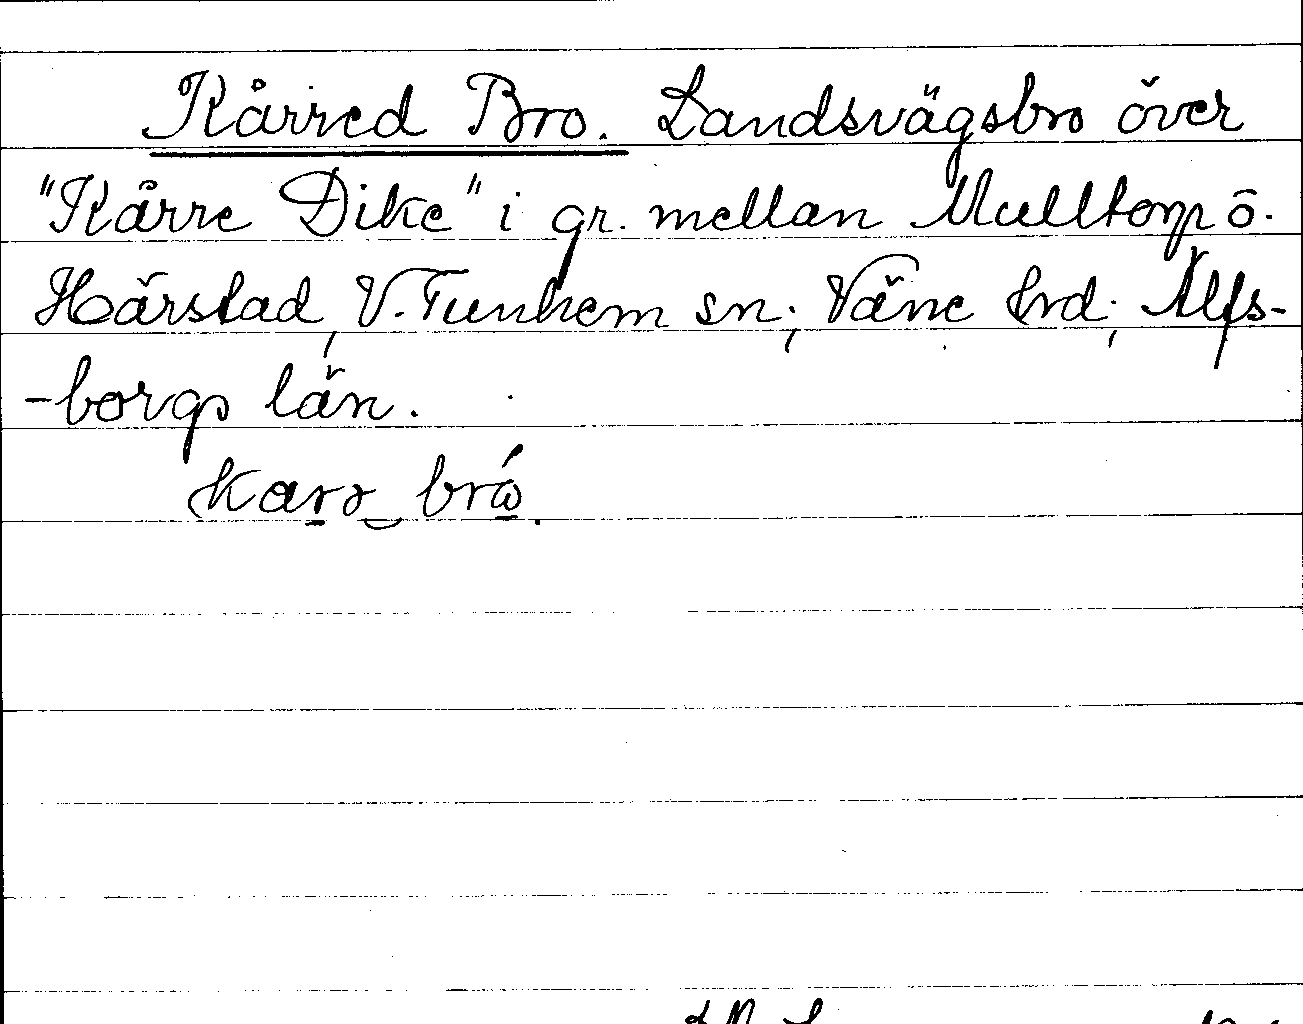 Kårred Bro. Landsvägsbro över
"Kårre Dike" i gr. mellan Mulltorp o.
Härstad, V. Tunhem sn; Väne hrd; Älfs-
-borgs län.
karə brώ.